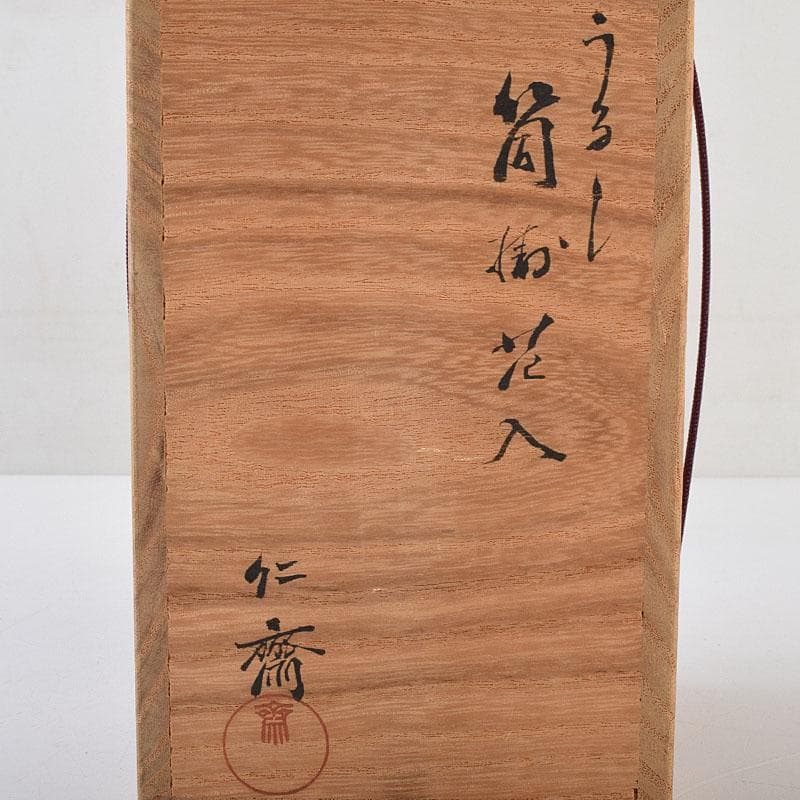 うるし
筒掛花入
仁齋
齋